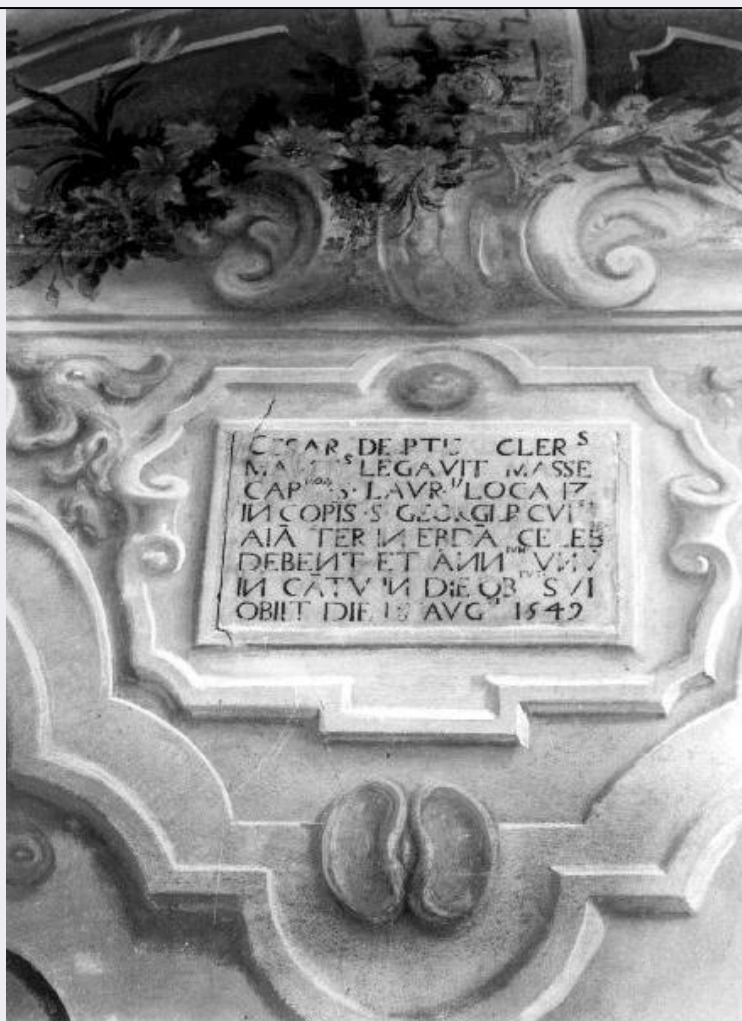 CESAR DE PTIS CLERˢ
LEGAVIT MASSE
LAVR LOCA 17
IN COPIS S GEORGII P CVI
AIĀ TER IN EBDĀ CELEB
DEBENT ET ĀNN VNV
IN CĀTV IN DIE OB SVI
OBIIT DIE AVG 1549